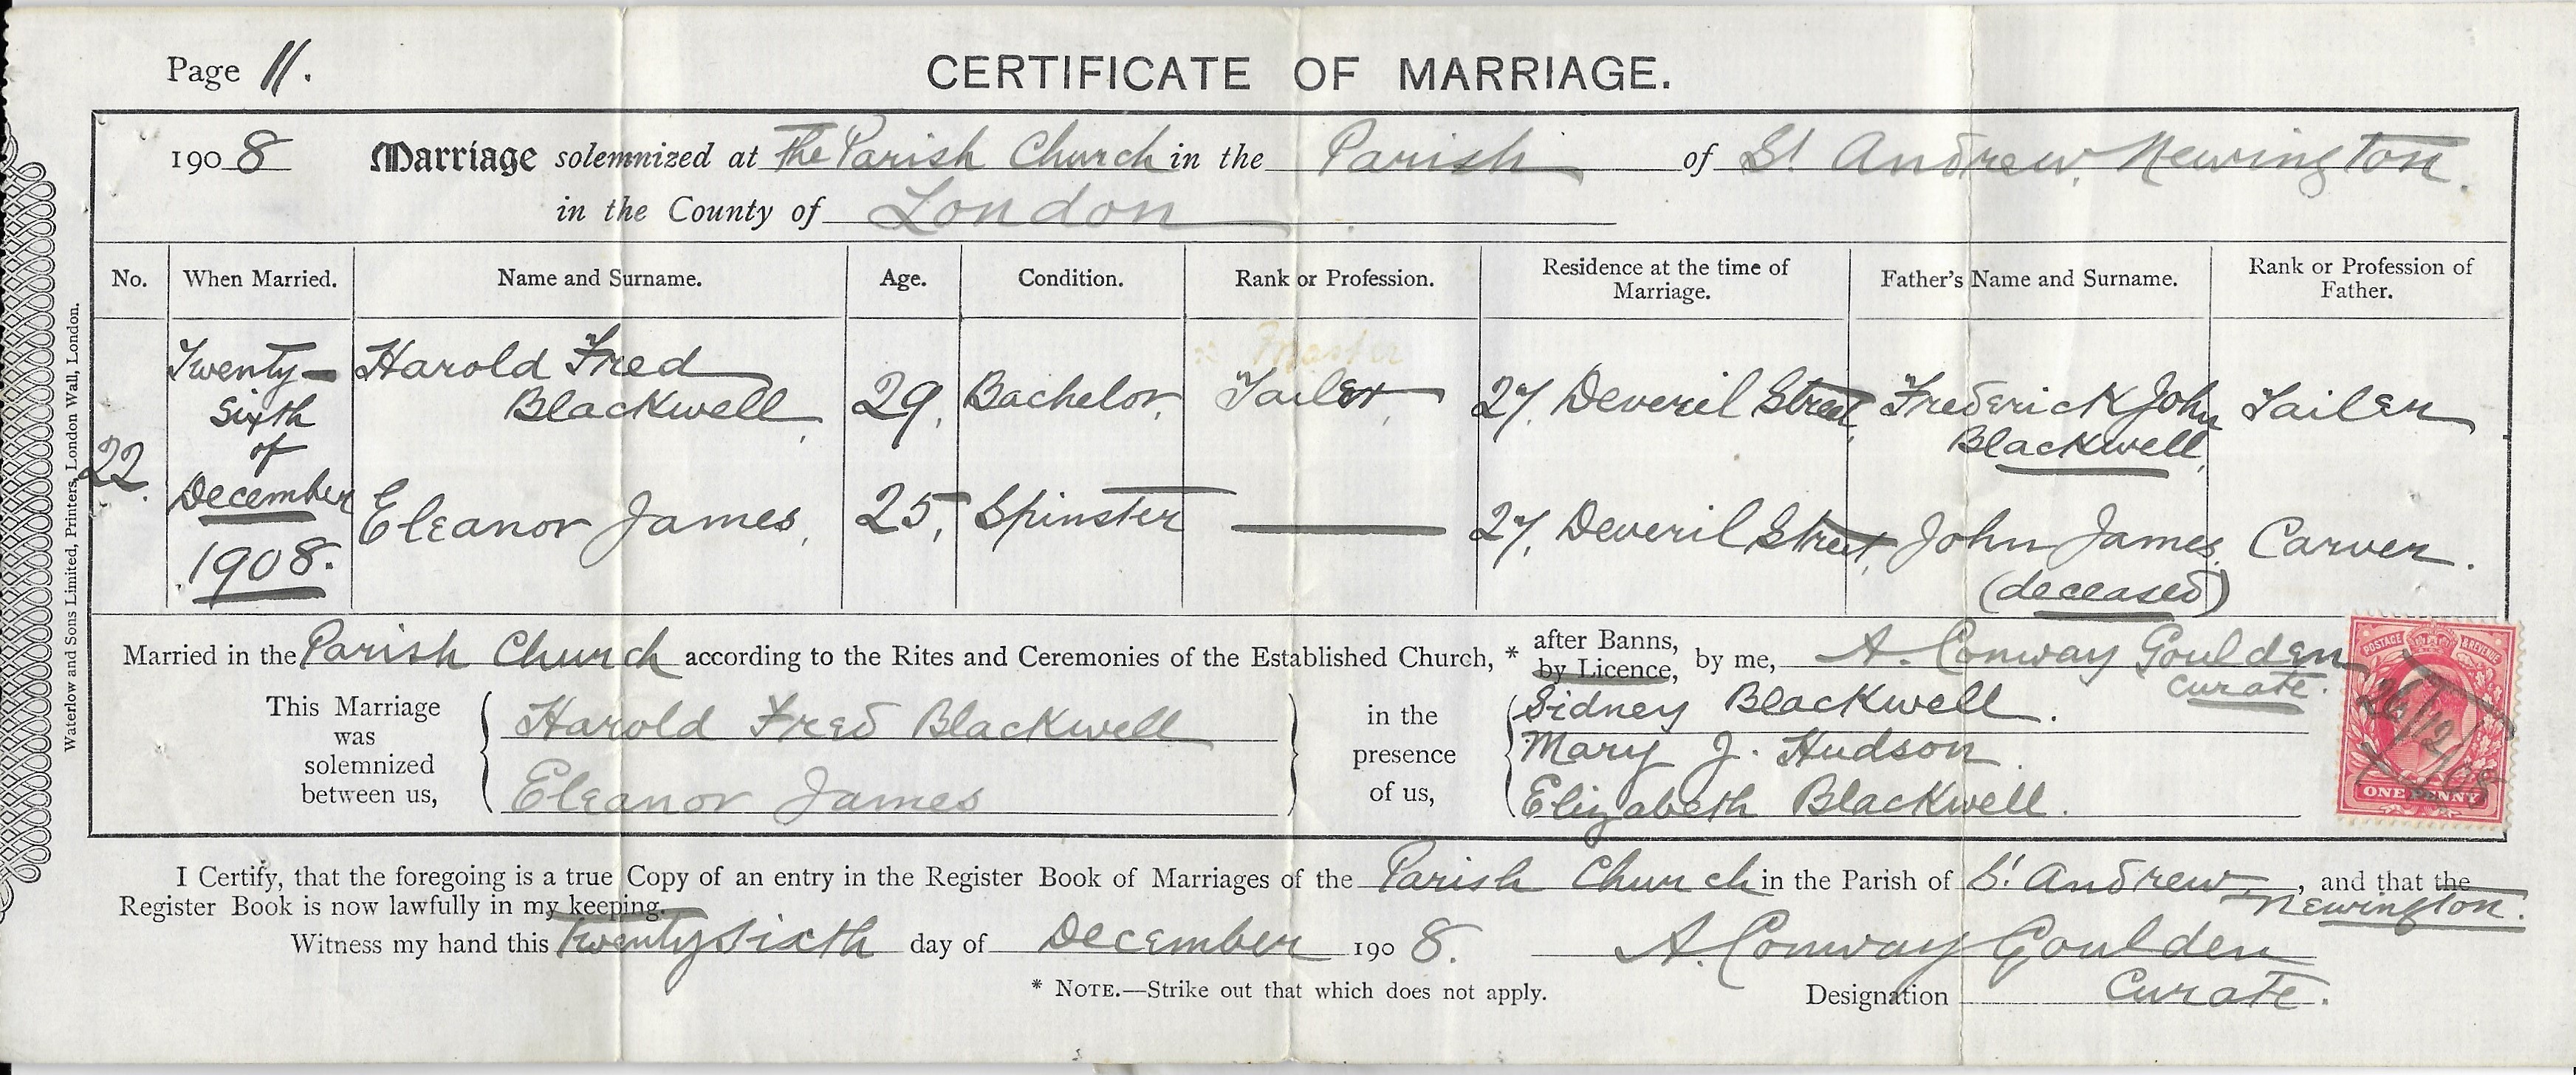 Page 11.
CERTIFICATE OF MARRIAGE.
1908 Marriage solemnized at The Parish Church in the Parish of St Andrew, Newington.
in the County of London
No. When Married. Name and Surname. Age. Condition. Rank or Profession. Residence at the time of Marriage. Father's Name and Surname. Rank or Profession of Father.
22. Twenty-sixth of December 1908.
Harold Fred Blackwell, 29, Bachelor, Master Tailor, 27, Deveril Street, Frederick John Blackwell, Tailer
Eleanor James, 25, Spinster 27, Deveril Street, John James, (deceased) Carver.
Married in the Parish Church according to the Rites and Ceremonies of the Established Church, * after Banns, by Licence, by me, A. Conway Goulden
curate.
This Marriage was solemnized between us, Harold Fred Blackwell
Eleanor James
in the presence of us, Sidney Blackwell.
Mary J. Hudson.
Elizabeth Blackwell.
POSTAGE & REVENUE
26/12/08
ONE PENNY
I Certify, that the foregoing is a true Copy of an entry in the Register Book of Marriages of the Parish Church in the Parish of St Andrew, Newington., and that the
Register Book is now lawfully in my keeping.
Witness my hand this Twenty sixth day of December 1908. A. Conway Goulden
* NOTE.—Strike out that which does not apply. Designation Curate.
Waterlow and Sons Limited, Printers, London Wall, London.